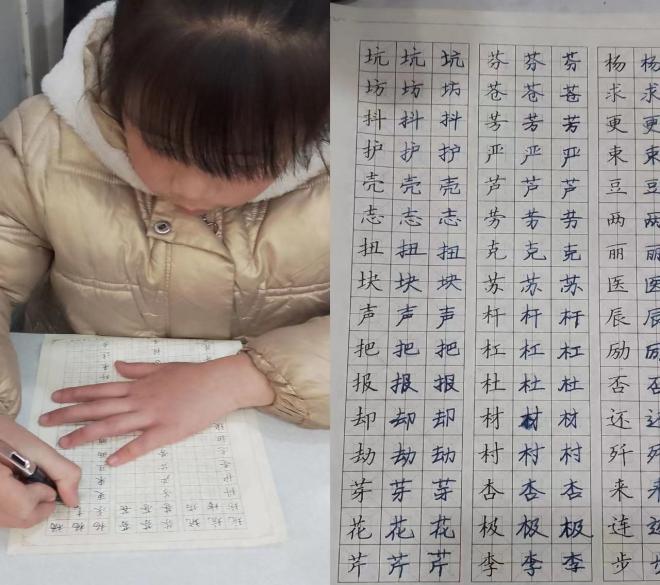 坑 坑 坑 芬 芬 芬 杨 杨
坊 坊 坊 苍 苍 苍 求 求
抖 抖 抖 芳 芳 芳 更 更
护 护 护 严 严 严 束 束
壳 壳 壳 芦 芦 芦 豆 豆
志 志 志 劳 劳 劳 两 两
扭 扭 扭 克 克 克 丽 丽
块 块 块 苏 苏 苏 医 医
声 声 声 杆 杆 杆 辰 辰
把 把 把 杠 杠 杠 励 励
报 报 报 杜 杜 杜 否 否
却 却 却 材 材 材 还 还
劫 劫 劫 村 村 村 歼 歼
芽 芽 芽 杏 杏 杏 来 来
花 花 花 极 极 极 连 连
芹 芹 芹 李 李 李 步 步